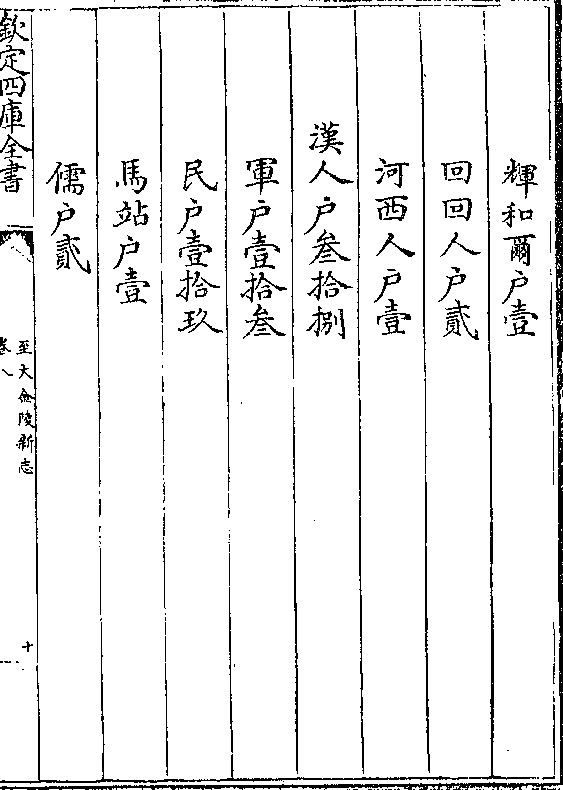 輝和爾户壹
回回人户貳
河西人户壹
漢人户叁拾捌
軍户壹拾叁
民户壹拾玖
馬站户壹
儒户貳
欽定四庫全書
至大金陵新志
卷八
十